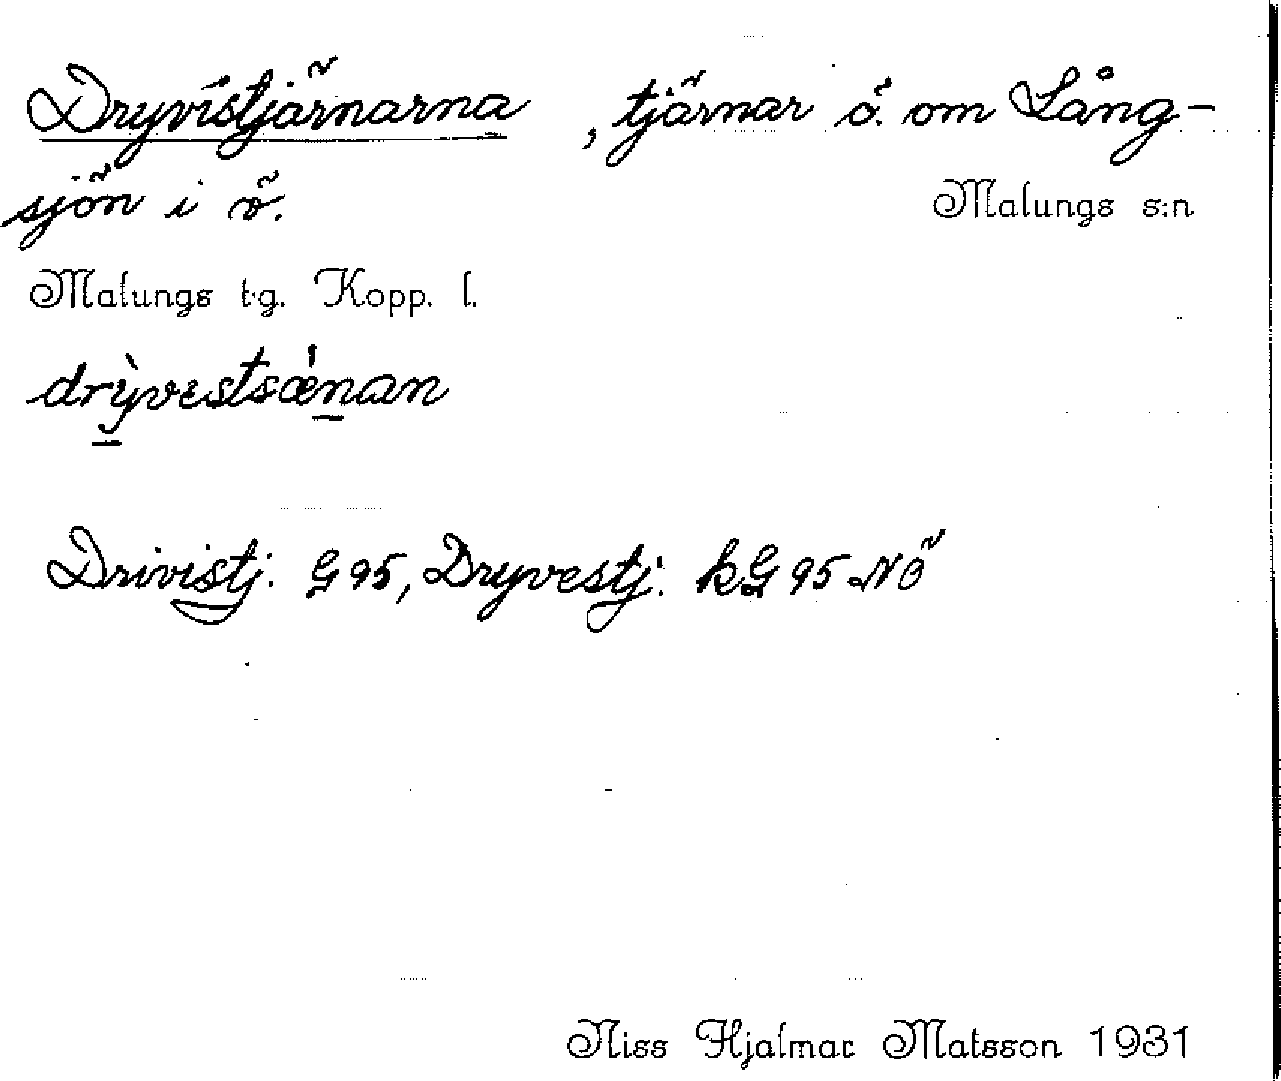 Dryvistjärnarna, tjärnar ö. om Lång-
sjön i ö.
Malungs s:n
Malungs tg. Kopp. l.
drỳvestsǽnan
Drivistj. G 95, Dryvestj. kG 95 NÖ
Niss Hjalmar Matsson 1931